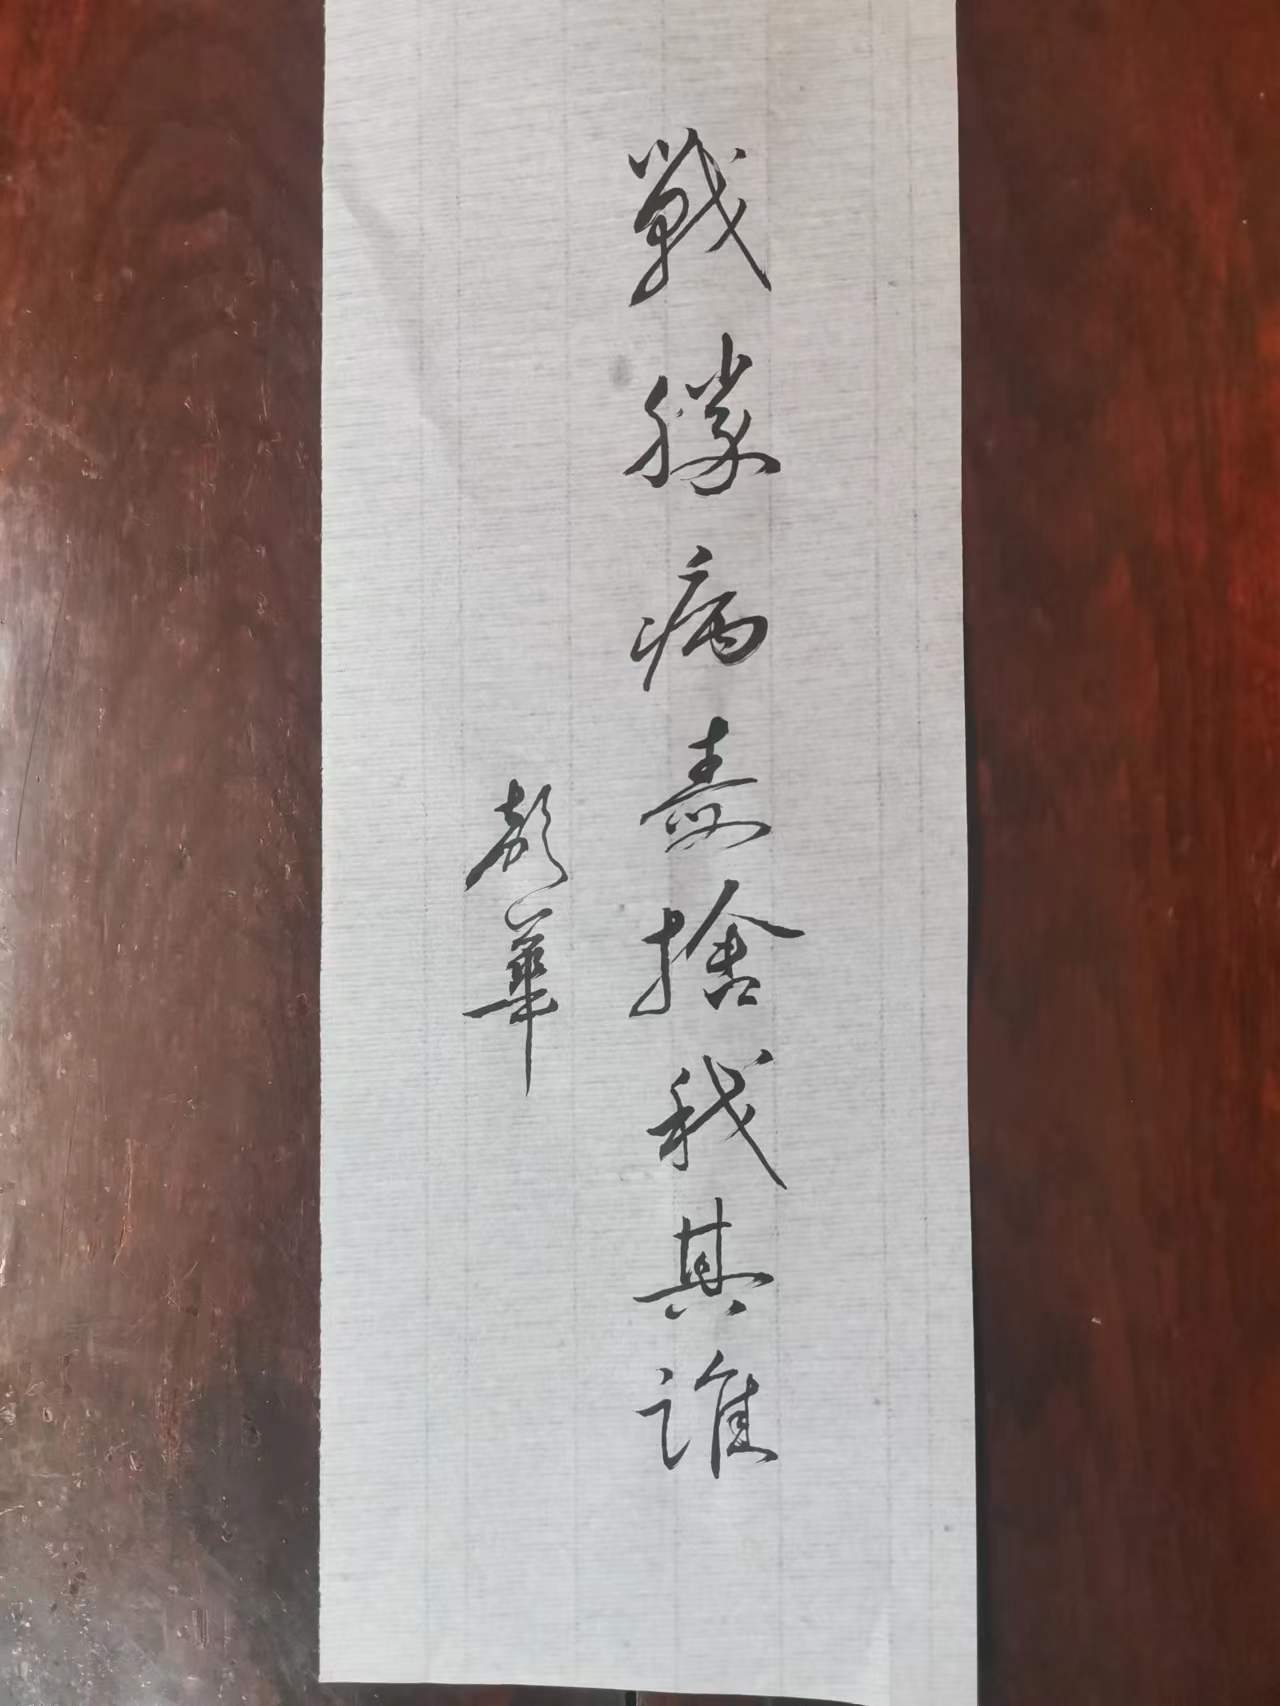 戰勝病毒捨我其谁
彭華